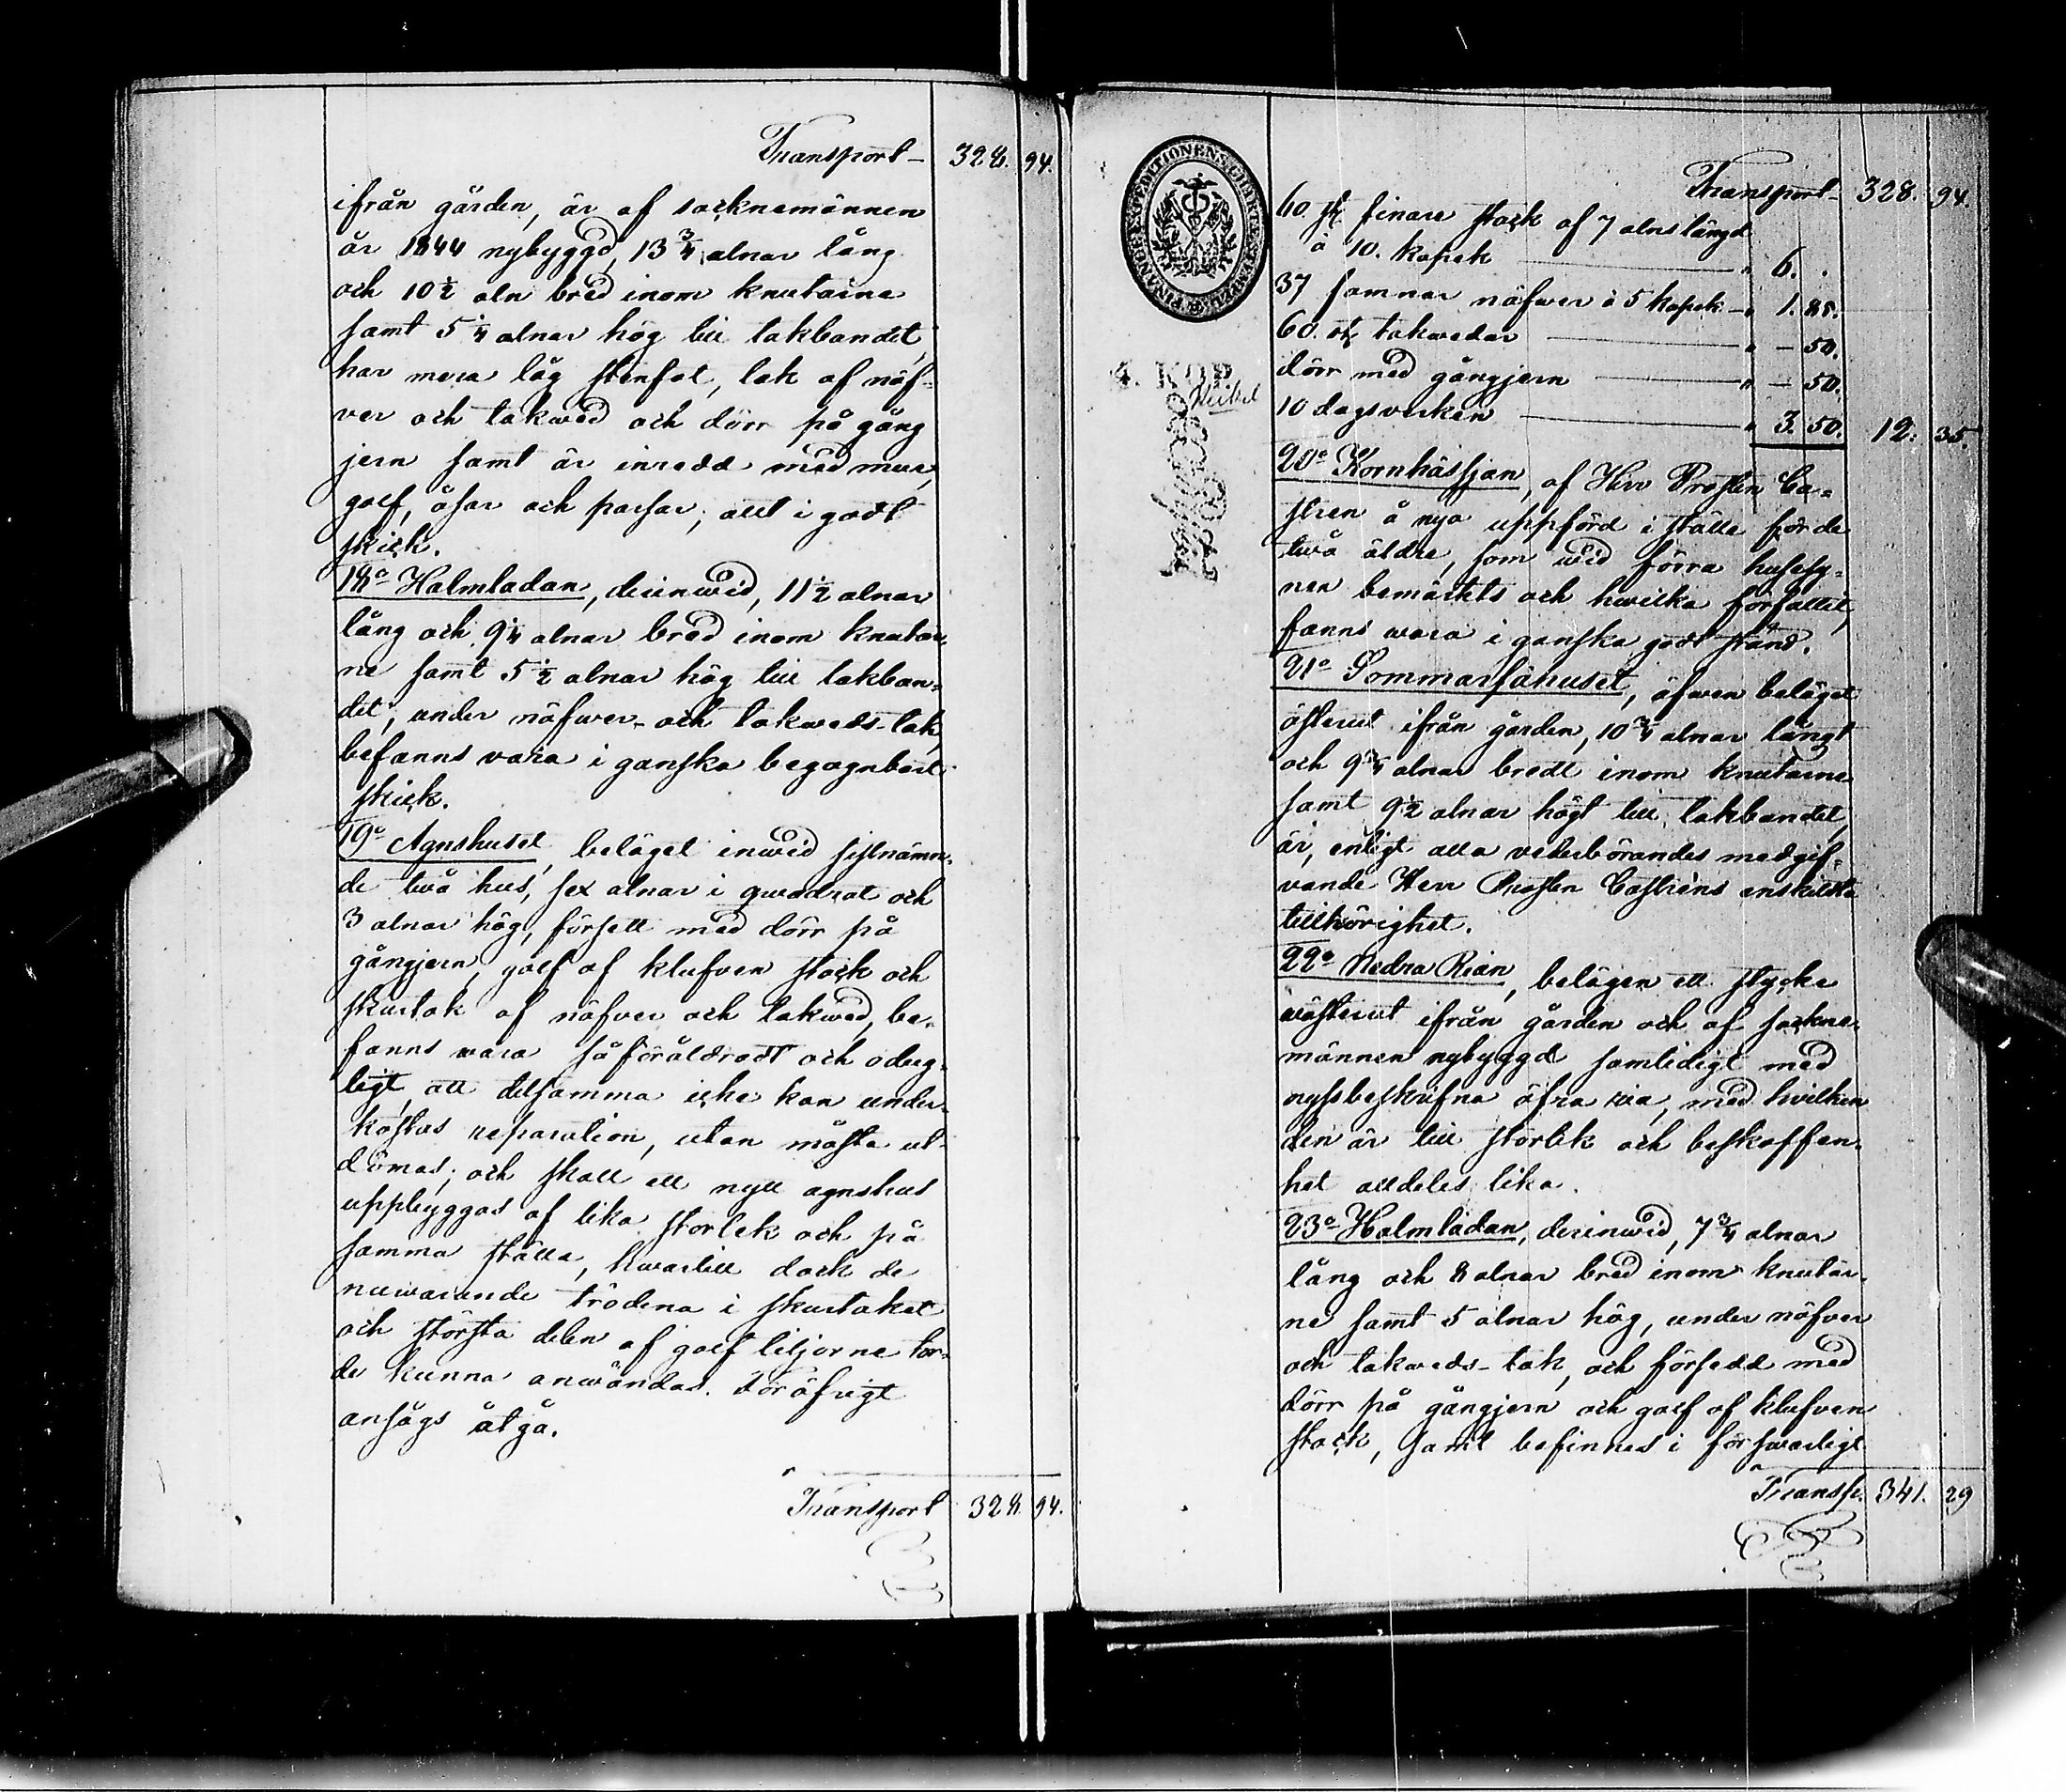 Transport – 328. 94.
ifrån gården, är af socknemännen
år 1844 nybyggd, 13 3/4 alnar lång
och 10 1/2 aln bred inom knutarne
samt 5 1/4 alnar hög till takbandet,
har mera låg stenfot, tak af näf-
ver och takwed och dörr på gång
jern samt är inredd med mur,
golf, åsar och parsar; allt i godt
skick.
18o Halmladan, derinwid, 11 1/2 alnar
lång och 9 1/4 alnar bred inom knutar-
ne samt 5 1/2 alnar hög till takban-
det, under näfwer- och takweds-tak,
befanns vara i ganska begagnbart
skick.
19o Agnshuset, beläget inwid sistnämn-
de två hus, sex alnar i qwadrat och
3 alnar hög, försett med dörr på
gångjern, golf af klufven stock och
skurtak af näfver och takwed, be-
fanns wara så föråldradt och odug-
ligt, att detsamma icke kan under-
kastas reparation, utan måste ut-
dömas; och skall ett nytt agnshus
uppbyggas af lika storlek och på
samma ställe, hwartill dock de
nuwarande tröderna i skurtaket
och största delen af golf tiljorne tor-
de kunna anwändas. Föröfrigt
ansågs åtgå.
Transport 328 94.
FINANCE EXPEDITIONENS CHARTESTEMPEL
4. KOP.
Transport – 328. 94.
60. st. finare stock af 7 alns längd
à 10. kopek " 6. .
37 famnar näfwer à 5 kopek – " 1. 85.
60. st. takwedar " – 50.
dörr med gångjern " – 50.
10 dagsverken " 3. 50. 12. 35.
20o Kornhässjan, af Herr Prosten Ca-
strén å nyo uppförd i stället för de
två äldre, som wid förra husesy-
nen bemärkts och hwilka förfallit,
fanns wara i ganska godt stånd.
21o Sommarfähuset, äfwen beläget
österut ifrån gården, 10 3/4 alnar långt
och 9 3/4 alnar bredt inom knutarne
samt 9 1/2 alnar högt till takbandet,
är, enligt alla vederbörandes medgif-
vande Herr Prosten Castréns enskildta
tillhörighet.
22o Nedra Rian, belägen ett stycke
wästerut ifrån gården och af sockne-
männen nybyggd samtidigt med
nyssbeskrifna öfra ria, med hvilken
den är till storlek och beskaffen-
het alldeles lika.
23o Halmladan, derinwid, 7 3/4 alnar
lång och 8 alnar bred inom knutar-
ne samt 5 alnar hög, under näfver
och takweds-tak, och försedd med
dörr på gångjern och golf af klufven
stock, samt befinnes i förswarligt
Transp. 341. 29